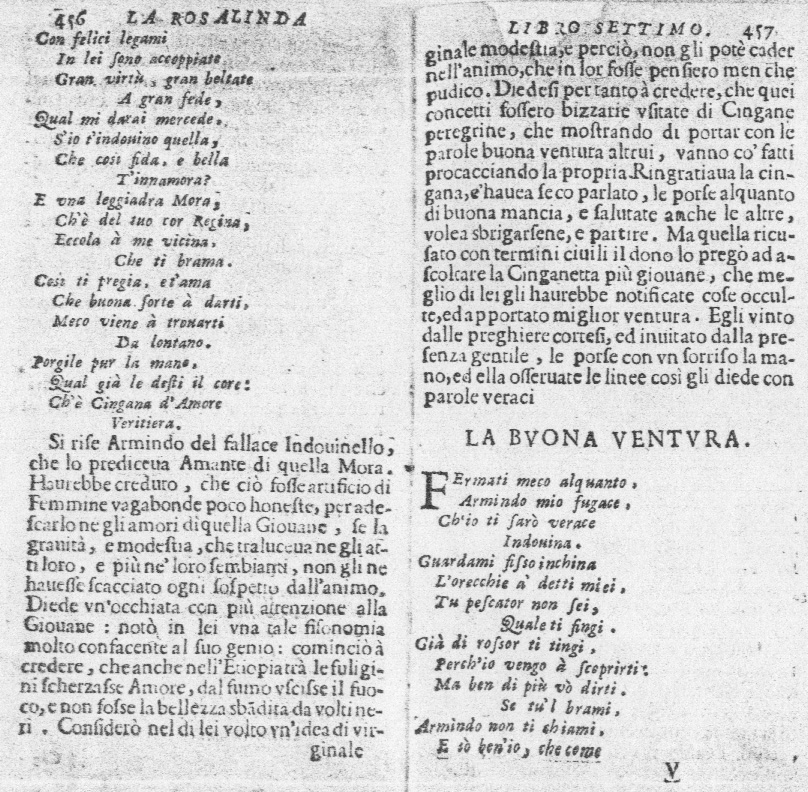 456 LA ROSALINDA
Con felici legami
In lei ſono accoppiate
Gran virtù, gran beltate
A gran fede,
Qual mi darai mercede.
S'io t'indouino quella,
Che così fida, e bella
T'innamora?
E vna leggiadra Mora,
Ch'è del tuo cor Regina,
Eccola à me vicina,
Che ti brama.
Così ti pregia, et'ama
Che buona ſorte à darti,
Meco viene à trouarti
Da lontano.
Porgile pur la mano,
Qual già le deſti il core:
Ch'è Cingana d'Amore
Veritiera.
Si riſe Armindo del fallace Indouinello,
che lo prediceua Amante di quella Mora.
Haurebbe creduto, che ciò foſſe artificio di
Femmine vagabonde poco honeſte, per ade-
ſcarlo ne gli amori di quella Giouane, ſe la
grauità, e modeſtia, che traluceua ne gli at-
ti loro, e più ne' loro ſembianti, non gli ne
haueſſe ſcacciato ogni ſoſpetto dall'animo.
Diede vn'occhiata con più attenzione alla
Giouane: notò in lei vna tale fiſonomia
molto confacente al ſuo genio: cominciò à
credere, che anche nell'Etiopia trà le fuligi-
ni ſcherzaſſe Amore, dal fumo vſciſſe il fuo-
co, e non foſſe la bellezza sbādita da volti ne-
ri. Conſiderò nel di lei volto vn'idea di vir-
ginale
LIBRO SETTIMO. 457
ginale modeſtia, e perciò, non gli potè cader
nell'animo, che in lor foſſe penſiero men che
pudico. Diedeſi per tanto à credere, che quei
concetti foſſero bizzarie vſitate di Cingane
peregrine, che moſtrando di portar con le
parole buona ventura altrui, vanno co' fatti
procacciando la propria. Ringratiaua la cin-
gana, c'hauea ſeco parlato, le porſe alquanto
di buona mancia, e ſalutate anche le altre,
volea sbrigarſene, e partire. Ma quella ricu-
ſato con termini ciuili il dono lo pregò ad a-
ſcoltare la Cinganetta più giouane, che me-
glio di lei gli haurebbe notificate coſe occul-
te, ed apportato miglior ventura. Egli vinto
dalle preghiere corteſi, ed inuitato dalla pre-
ſenza gentile, le porſe con vn ſorriſo la ma-
no, ed ella oſſeruate le linee così gli diede con
parole veraci
LA BVONA VENTVRA.
FErmati meco alquanto,
Armindo mio fugace,
Ch'io ti ſarò verace
Indouina.
Guardami fiſſo inchina
L'orecchie a' detti miei,
Tu peſcator non ſei,
Quale ti fingi.
Già di roſſor ti tingi,
Perch'io vengo à ſcoprirti:
Ma ben di più vò dirti.
Se tu'l brami,
Armindo non ti chiami,
E sò ben'io, che come
V